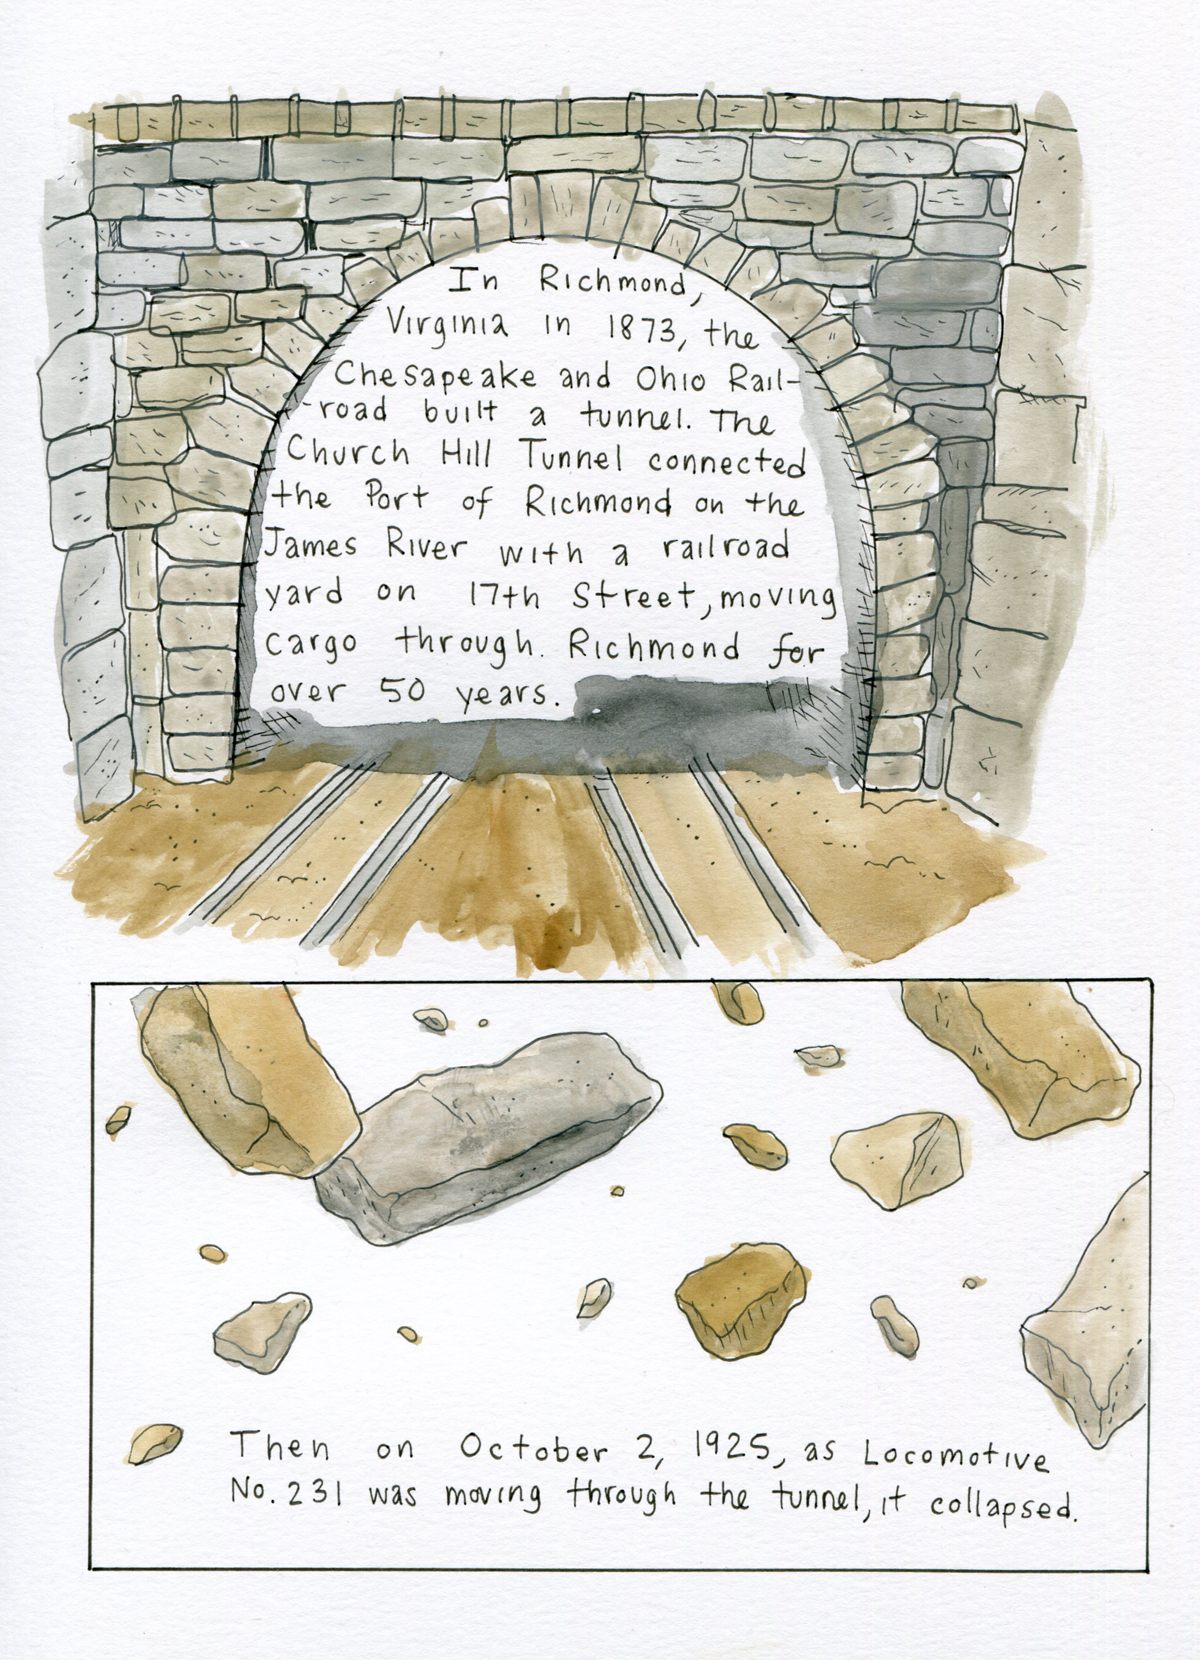 In Richmond,
Virginia in 1873, the
Chesapeake and Ohio Rail-
-road built a tunnel. The
Church Hill Tunnel connected
the Port of Richmond on the
James River with a railroad
yard on 17th Street, moving
cargo through. Richmond for
over 50 years.
Then on October 2, 1925, as Locomotive
No. 231 was moving through the tunnel, it collapsed.